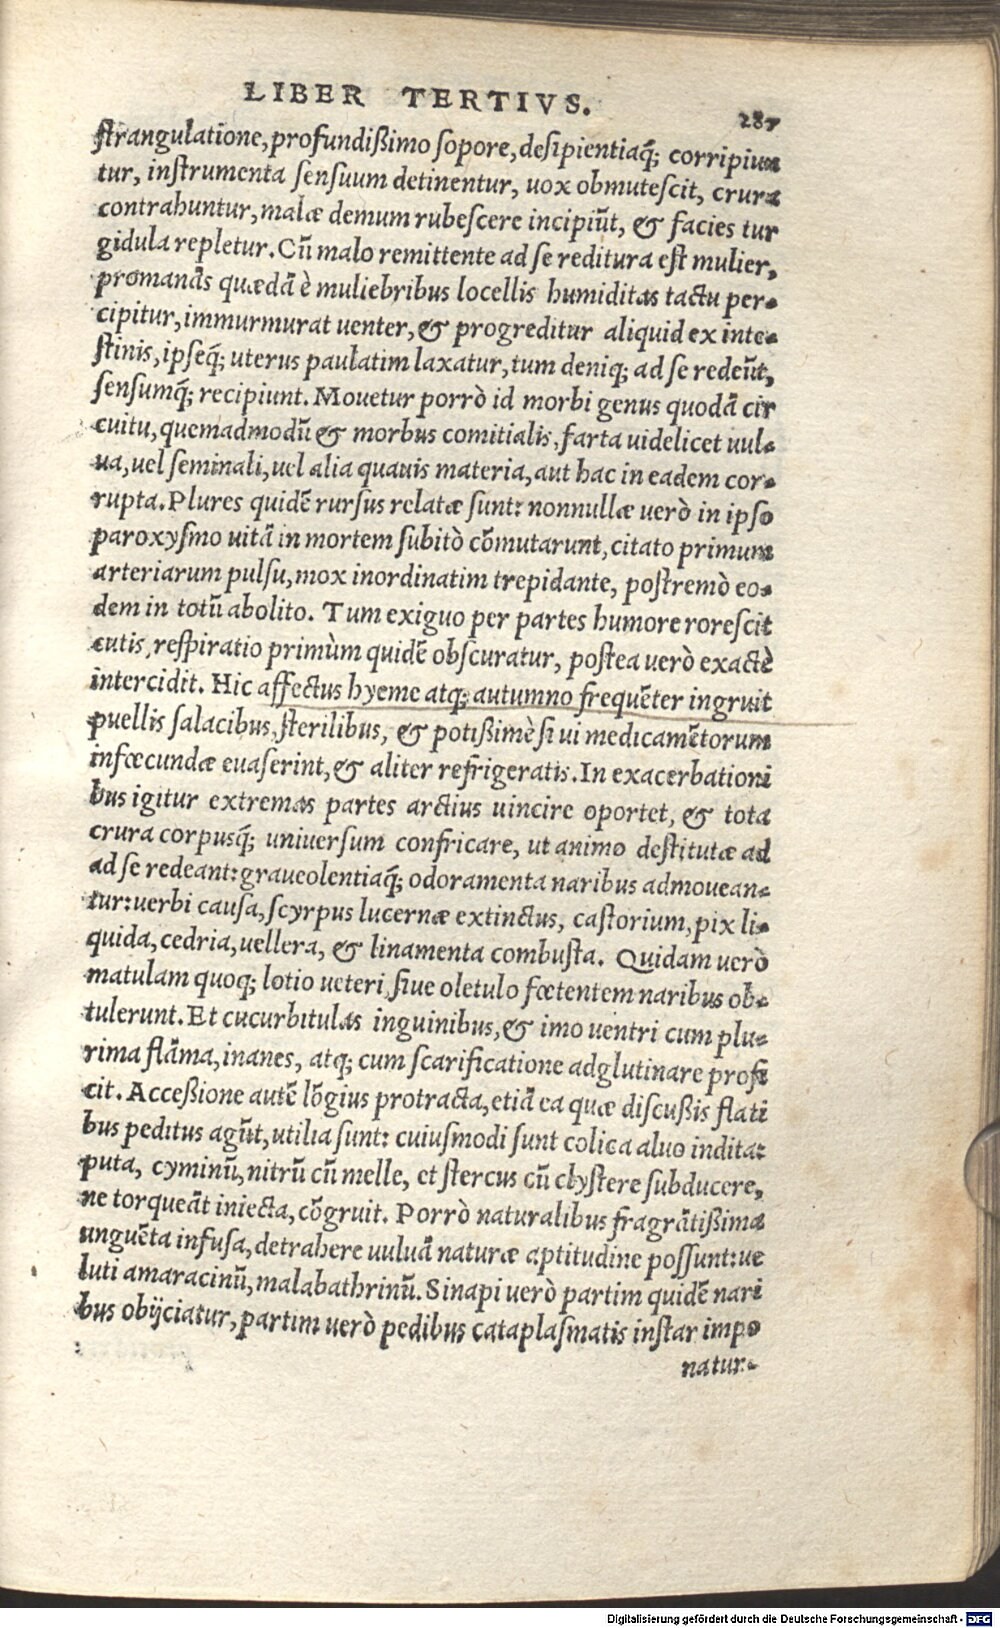 LIBER TERTIVS.
287
strangulatione, profundißimo sopore, desipientiaq́; corripiun
tur, instrumenta sensuum detinentur, uox obmutescit, crura
contrahuntur, malæ demum rubescere incipiūt, & facies tur
gidula repletur. Cū malo remittente ad se reditura est mulier,
promanās quædā è muliebribus locellis humiditas tactu per-
cipitur, immurmurat uenter, & progreditur aliquid ex inte-
stinis, ipseq́; uterus paulatim laxatur, tum deniq; ad se redeūt,
sensumq́; recipiunt. Mouetur porrò id morbi genus quodā cir
cuitu, quemadmodū & morbus comitialis, farta uidelicet uul-
ua, uel seminali, uel alia quauis materia, aut hac in eadem cor-
rupta. Plures quidē rursus relatæ sunt: nonnullæ uerò in ipso
paroxysmo uitā in mortem subitò cōmutarunt, citato primum
arteriarum pulsu, mox inordinatim trepidante, postremò eo-
dem in totū abolito. Tum exiguo per partes humore rorescit
cutis, respiratio primùm quidē obscuratur, postea uerò exactè
intercidit. Hic affectus hyeme atq; autumno frequēter ingruit
puellis salacibus, sterilibus, & potißimè si ui medicamētorum
infœcundæ euaserint, & aliter refrigeratis. In exacerbationi
bus igitur extremas partes arctius uincire oportet, & tota
crura corpusq́; uniuersum confricare, ut animo destitutæ ad
ad se redeant: graueolentiaq́; odoramenta naribus admouean-
tur: uerbi causa, scyrpus lucernæ extinctus, castorium, pix li-
quida, cedria, uellera, & linamenta combusta. Quidam uerò
matulam quoq; lotio ueteri, siue oletulo fœtentem naribus ob-
tulerunt. Et cucurbitulas inguinibus, & imo uentri cum plu-
rima flāma, inanes, atq; cum scarificatione adglutinare profi
cit. Acceßione autē lōgius protracta, etiā ea quæ discußis flati
bus peditus agūt, utilia sunt: cuiusmodi sunt colica aluo indita:
puta, cyminū, nitrū cū melle, et stercus cū clystere subducere,
ne torqueāt iniecta, cōgruit. Porrò naturalibus fragrātißima
unguēta infusa, detrahere uuluā naturæ aptitudine possunt: ue
luti amaracinū, malabathrinū. Sinapi uerò partim quidē nari
bus obijciatur, partim uerò pedibus cataplasmatis instar impo
natur-
Digitalisierung gefördert durch die Deutsche Forschungsgemeinschaft - DFG